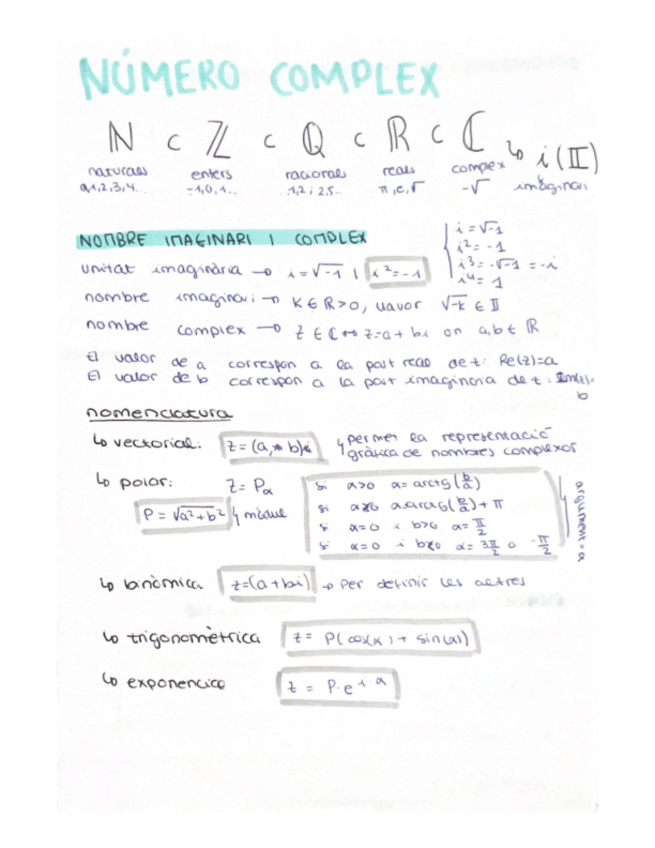 NÚMERO COMPLEX
ℕ ⊂ ℤ ⊂ ℚ ⊂ ℝ ⊂ ℂ ↳ i (𝕀)
naturals enters racionals reals complex imaginari
0,1,2,3,4... -1,0,1.. 1,2 ; 2,5.. π,e,√ -√
NOMBRE IMAGINARI I COMPLEX
unitat imaginària → i = √-1 | i² = -1
i = √-1
i² = -1
i³ = -√-1 = -i
i⁴ = 1
nombre imaginari → K ∈ ℝ > 0, llavor √-k ∈ 𝕀
nombre complex → z ∈ ℂ ↔ z = a + bi on a,b ∈ ℝ
El valor de a correspon a la part real de z: Re(z)=a
El valor de b correspon a la part imaginaria de z: Im(z)=
b
nomenclatura
↳ vectorial: z = (a, b) ↳ permet la representació
gràfica de nombres complexos
↳ polar: z = Pα
P = √a²+b² ↳ mòdul
si a>0 α = arctg(b/a)
si a<0 α arctg(b/a) + π
si a=0 i b>0 α = π/2
si a=0 i b<0 α = 3π/2 o -π/2
argument = α
↳ binòmica z=(a+bi) → per definir les altres
↳ trigonomètrica z = P(cos(α)+ sin(α))
↳ exponencial z = P·e^i·α